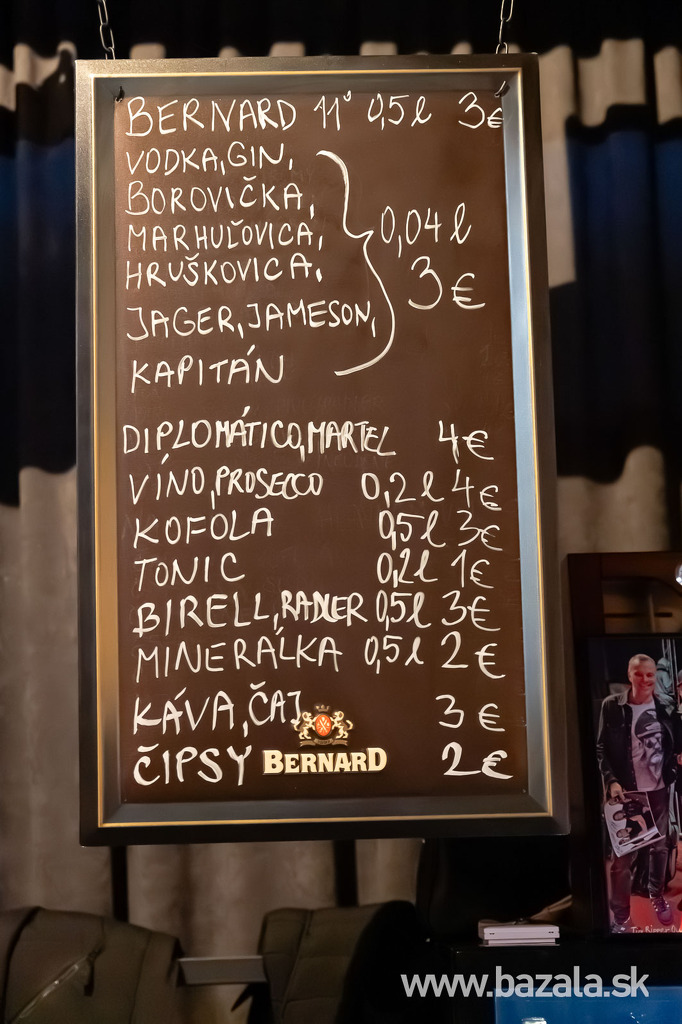 BERNARD 11° 0,5l 3€
VODKA, GIN,
BOROVIČKA,
MARHUĽOVICA,
HRUŠKOVICA,
0,04 l
3€
JAGER, JAMESON,
KAPITÁN
DIPLOMÁTICO, MARTEL 4€
VÍNO, PROSECCO 0,2l 4€
KOFOLA 0,5l 3€
TONIC 0,2l 1€
BIRELL, RADLER 0,5l 3€
MINERÁLKA 0,5l 2€
KÁVA, ČAJ 3€
ČIPSY 2€
BERNARD
www.bazala.sk